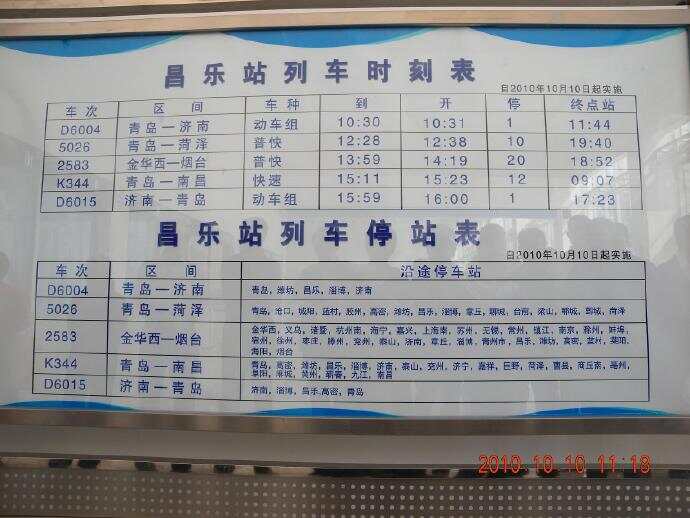 昌乐站列车时刻表
自2010年10月10日起实施
车次 区间 车种 到 开 停 终点站
D6004 青岛—济南 动车组 10:30 10:31 1 11:44
5026 青岛—菏泽 普快 12:28 12:38 10 19:40
2583 金华西—烟台 普快 13:59 14:19 20 18:52
K344 青岛—南昌 快速 15:11 15:23 12 09:07
D6015 济南—青岛 动车组 15:59 16:00 1 17:23
昌乐站列车停站表
自2010年10月10日起实施
车次 区间 沿途停车站
D6004 青岛—济南 青岛,潍坊,昌乐,淄博,济南
5026 青岛—菏泽 青岛,沧口,城阳,蓝村,胶州,高密,潍坊,昌乐,淄博,章丘,聊城,台前,梁山,郓城,鄄城,菏泽
2583 金华西—烟台 金华西,义乌,诸暨,杭州南,海宁,嘉兴,上海南,苏州,无锡,常州,镇江,南京,滁州,蚌埠,
宿州,徐州,枣庄,滕州,兖州,泰山,济南,章丘,淄博,青州市,昌乐,潍坊,高密,蓝村,莱阳,
海阳,烟台
K344 青岛—南昌 青岛,高密,潍坊,昌乐,淄博,济南,泰山,兖州,济宁,嘉祥,巨野,菏泽,曹县,商丘南,亳州,
阜阳,麻城,黄州,蕲春,九江,南昌
D6015 济南—青岛 济南,淄博,昌乐,高密,青岛
2010 10 10 11:18